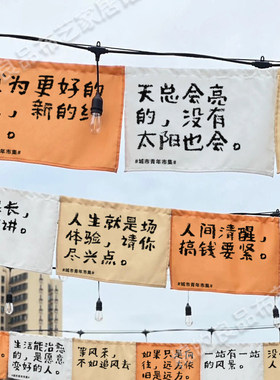 为更好的
,新的纟
天总会亮
的,没有
太阳也会。
#城市青年市集#
#城市青年市集#
长,
讲。
人生就是场
体验,请你
尽兴点。
#城市青年市集#
人间清醒,
搞钱要紧。
#城市青年市集#
生活能治愈
的,是愿意
变好的人。
等风来,
不如追风去
如果
往是
只是
远方
一站有一站
的风景。